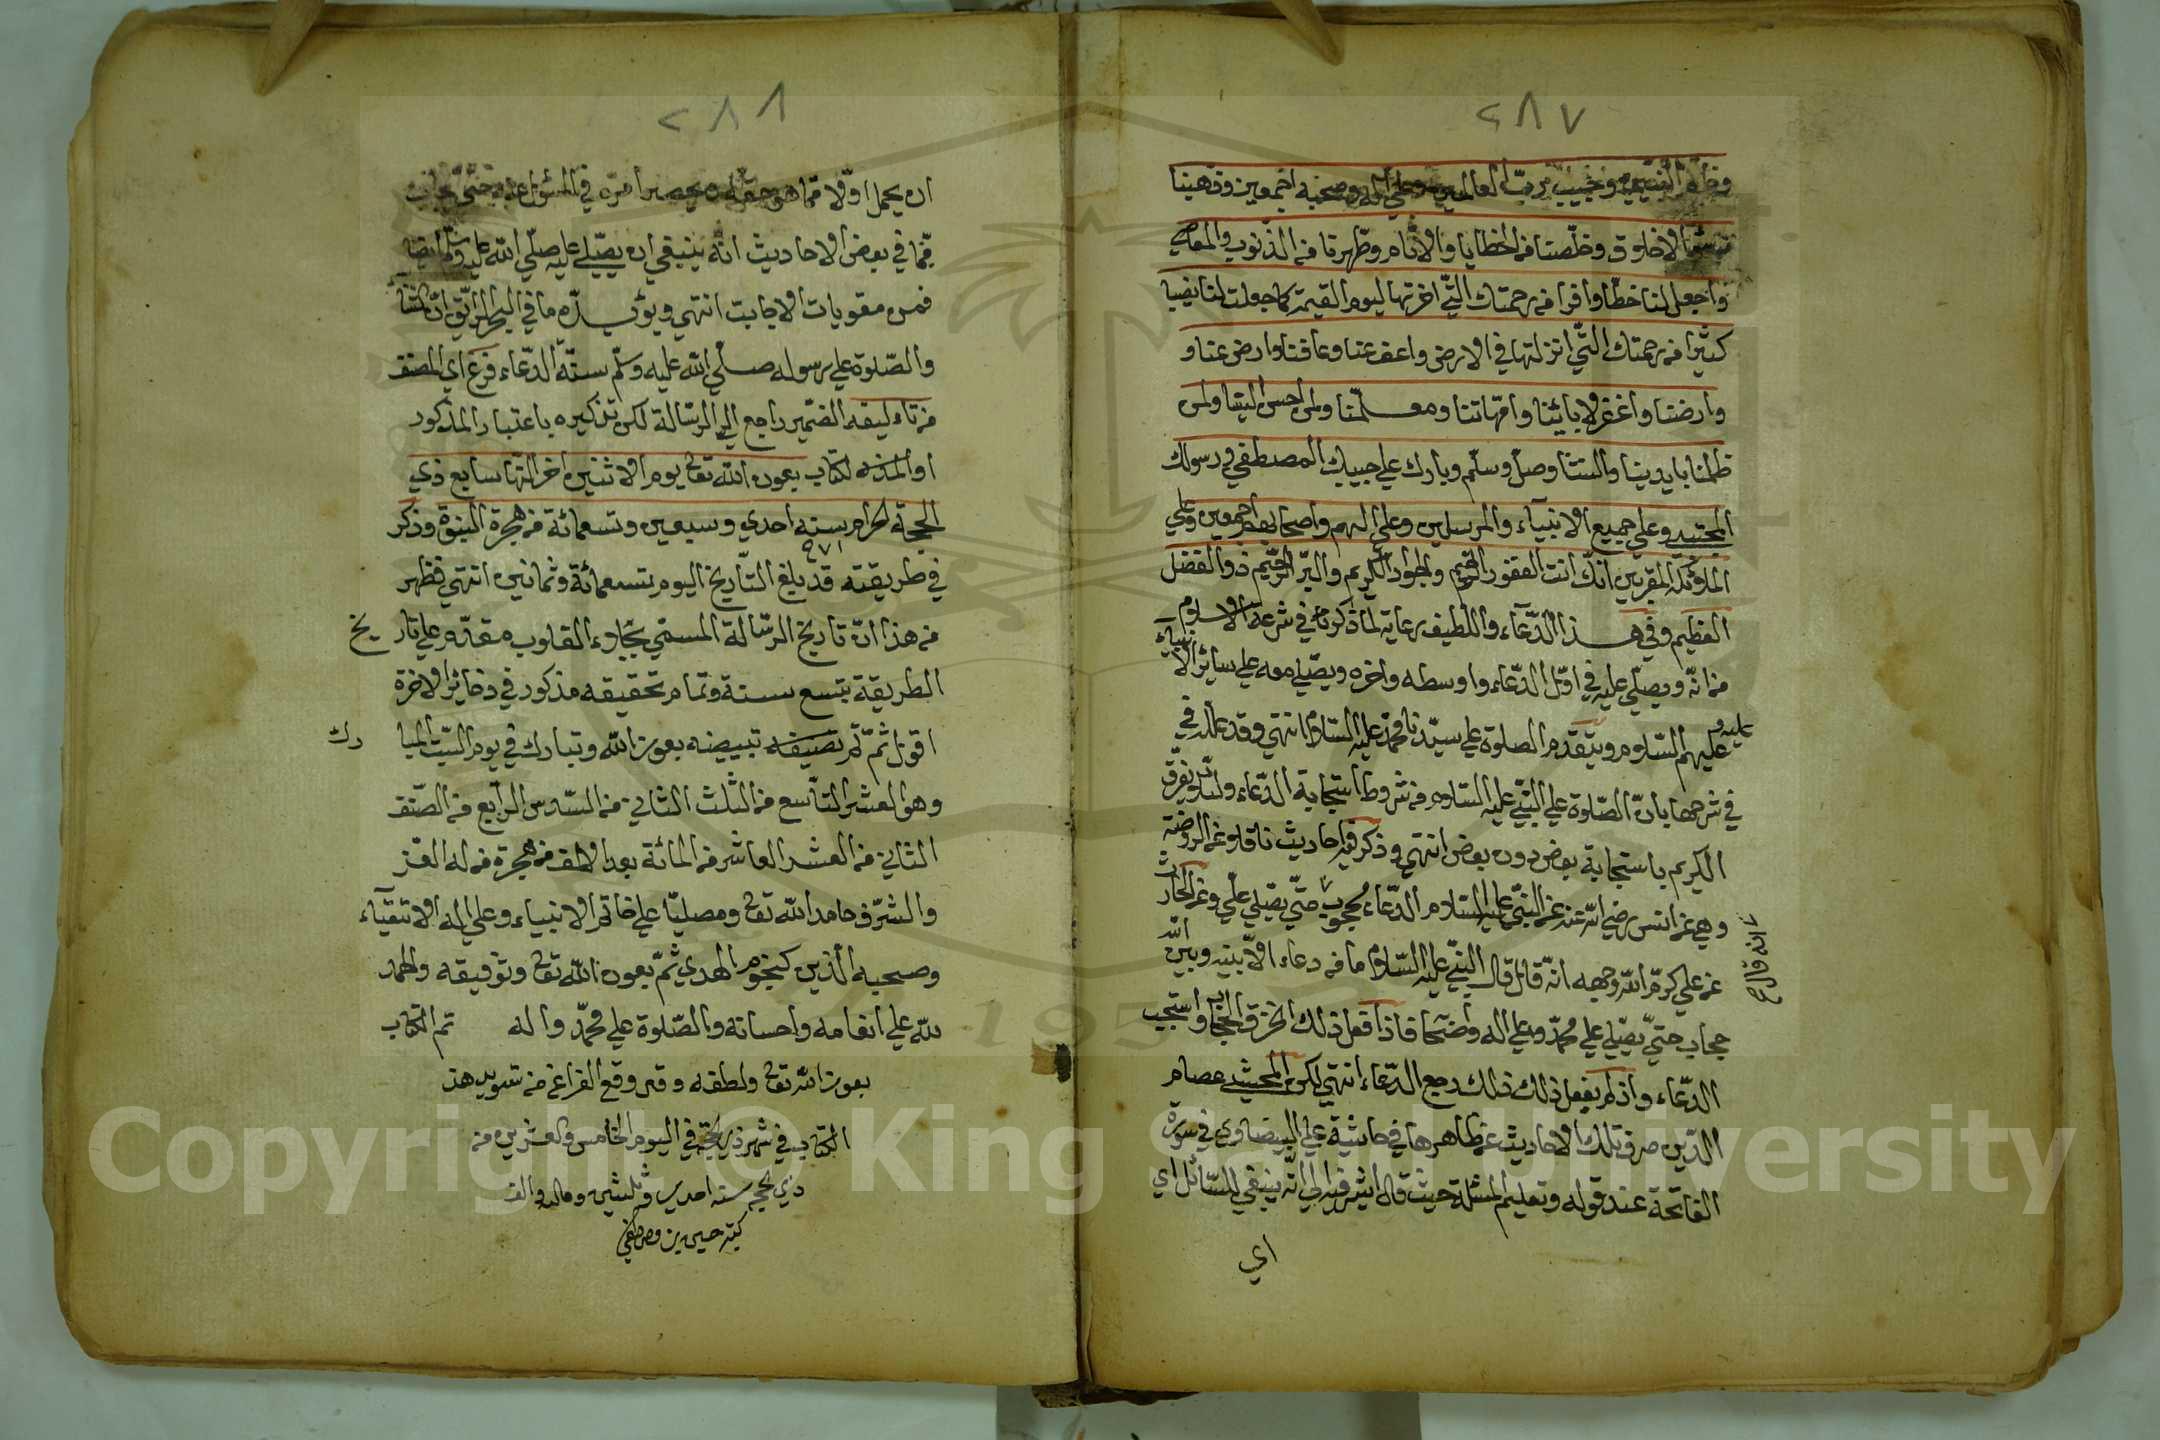 ٢٨٧
وحبيب رب العالمين وعلى آله وصحبه اجمعين وذهبنا
الاخلاق وخلّصنا من الخطايا والآثام وطهرنا من الذّنوب والمعاصي
واجعل لنا حظّا وافرا من رحمتك الّتي اخرتها ليوم القيمة كما جعلت لنا نصيبا
كثيرا من رحمتك الّتي انزلتها في الارض واعف عنا وعافنا وارض عنا و
وارضنا واغفر لآبائنا وامّهاتنا ومعلّمنا ولمن احسن الينا ولمن
ظلمنا بايدينا والسنتنا وصلّ وسلّم وبارك على حبيبك المصطفى ورسولك
المجتبى وعلى جميع الانبياء والمرسلين وعلى آلهم واصحابهم اجمعين وعلى
الملائكة المقربين انّك انت الغفور الرّحيم والجواد الكريم والبرّ الرّحيم ذو الفضل
العظيم وفي هذا الدّعاء واللطيف رعاية لما ذكرناه في شرعة الاسلام
من انّه ويصلّي عليه في اوّل الدّعاء واوسطه وآخره ويصلّي معه على سائر الانبياء
عليهم السّلام ويتقدم الصلوة على سيّدنا محمّد عليه السّلام انتهى وقد علّل في
في شرحها بانّ الصّلوة على النّبي عليه السّلام من شروط استجابة الدّعاء ولئلا يفرّق
الكريم باستجابة بعض دون بعض انتهى وذكر فيه احاديث ناقلا عن الروضة
وهي عن انس رضي الله عنه عن النّبي عليه السّلام الدّعاء محجوب حتّى يصلّي عليّ وعن الحارث
عن علي كرّم الله وجهه انّه قال قال النّبي عليه السّلام ما من دعاء الّا بينه وبين الله
حجاب حتّى يصلّي على محمّد وعلى آله واصحابه فاذا فعل ذلك انخرق الحجاب واستجيب
الدّعاء واذا لم يفعل ذلك رجع الدّعاء انتهى لكن المحشي عصام
الدّين صرف تلك الاحاديث عن ظاهرها في حاشية على البيضاوي في سورة
الفاتحة عند قوله وتعليم المسئلة حيث قال اشرفيه الى انّه ينبغي للسّائل اي
اي
٢٨٨
ان يحمل اوّلا في المسئول عنه حتّى يجاب
فما في بعض الاحاديث انّه ينبغي ان يصلّى عليه صلّى الله عليه وسلّم ايضا
فمن مقويات الاجابت انتهى ويؤيّده ما في البحر الرّائق انّ الثناء
والصّلوة على رسوله صلّى الله عليه وسلّم سنّة الدّعاء فرغ اي المصنف
من تاليفه الضّمير راجع الى الرّسالة لكن تذكيره باعتبار المذكور
او لكتاب بعون الله تعالى يوم الاثنين اخر النّهار سابع ذي
الحجّة الحرام سنه احدى وسبعين وتسعمائة من هجرة النبوة وذكر
٩٧١
في طريقته قد بلغ التّاريخ اليوم تسعمائة وثمانين انتهى فظهر
من هذا انّ تاريخ الرّسالة المسمّى بجلاء القلوب مقدّم على تاريخ
الطريقة بتسع سنة وتمام تحقيقه مذكور في ذخائر الآخرة
اقول ثمّ تمّ تصنيفه تبييضه بعون الله وتبارك في يوم السّبت المبارك
وهو العشر التّاسع من الثلث الثاني من السّدس الرّابع من الصّنف
الثاني من العشر العاشر من المائة بعد الالف من هجرة من له العزّ
والشرّف حامدا لله تعالى ومصليّا على خاتم الانبياء وعلى اله الاتقيآء
وصحبه الّذين كنجوم الهدى ثمّ بعون الله تعالى وتوفيقه والحمد
لله على انعامه واحسانه والصّلوة على محمّد وآله تم الكتاب
بعون الله تعالى ولطفه وقد وقع الفراغ من تسويد هذا
الكتاب في شهر ذي الحجّة في اليوم الخامس والعشرين من
ذي الحجه سنه احدى وثلثين ومائه والف
كتبه حسين بن مصطفى
Copyright © King Saud University
195